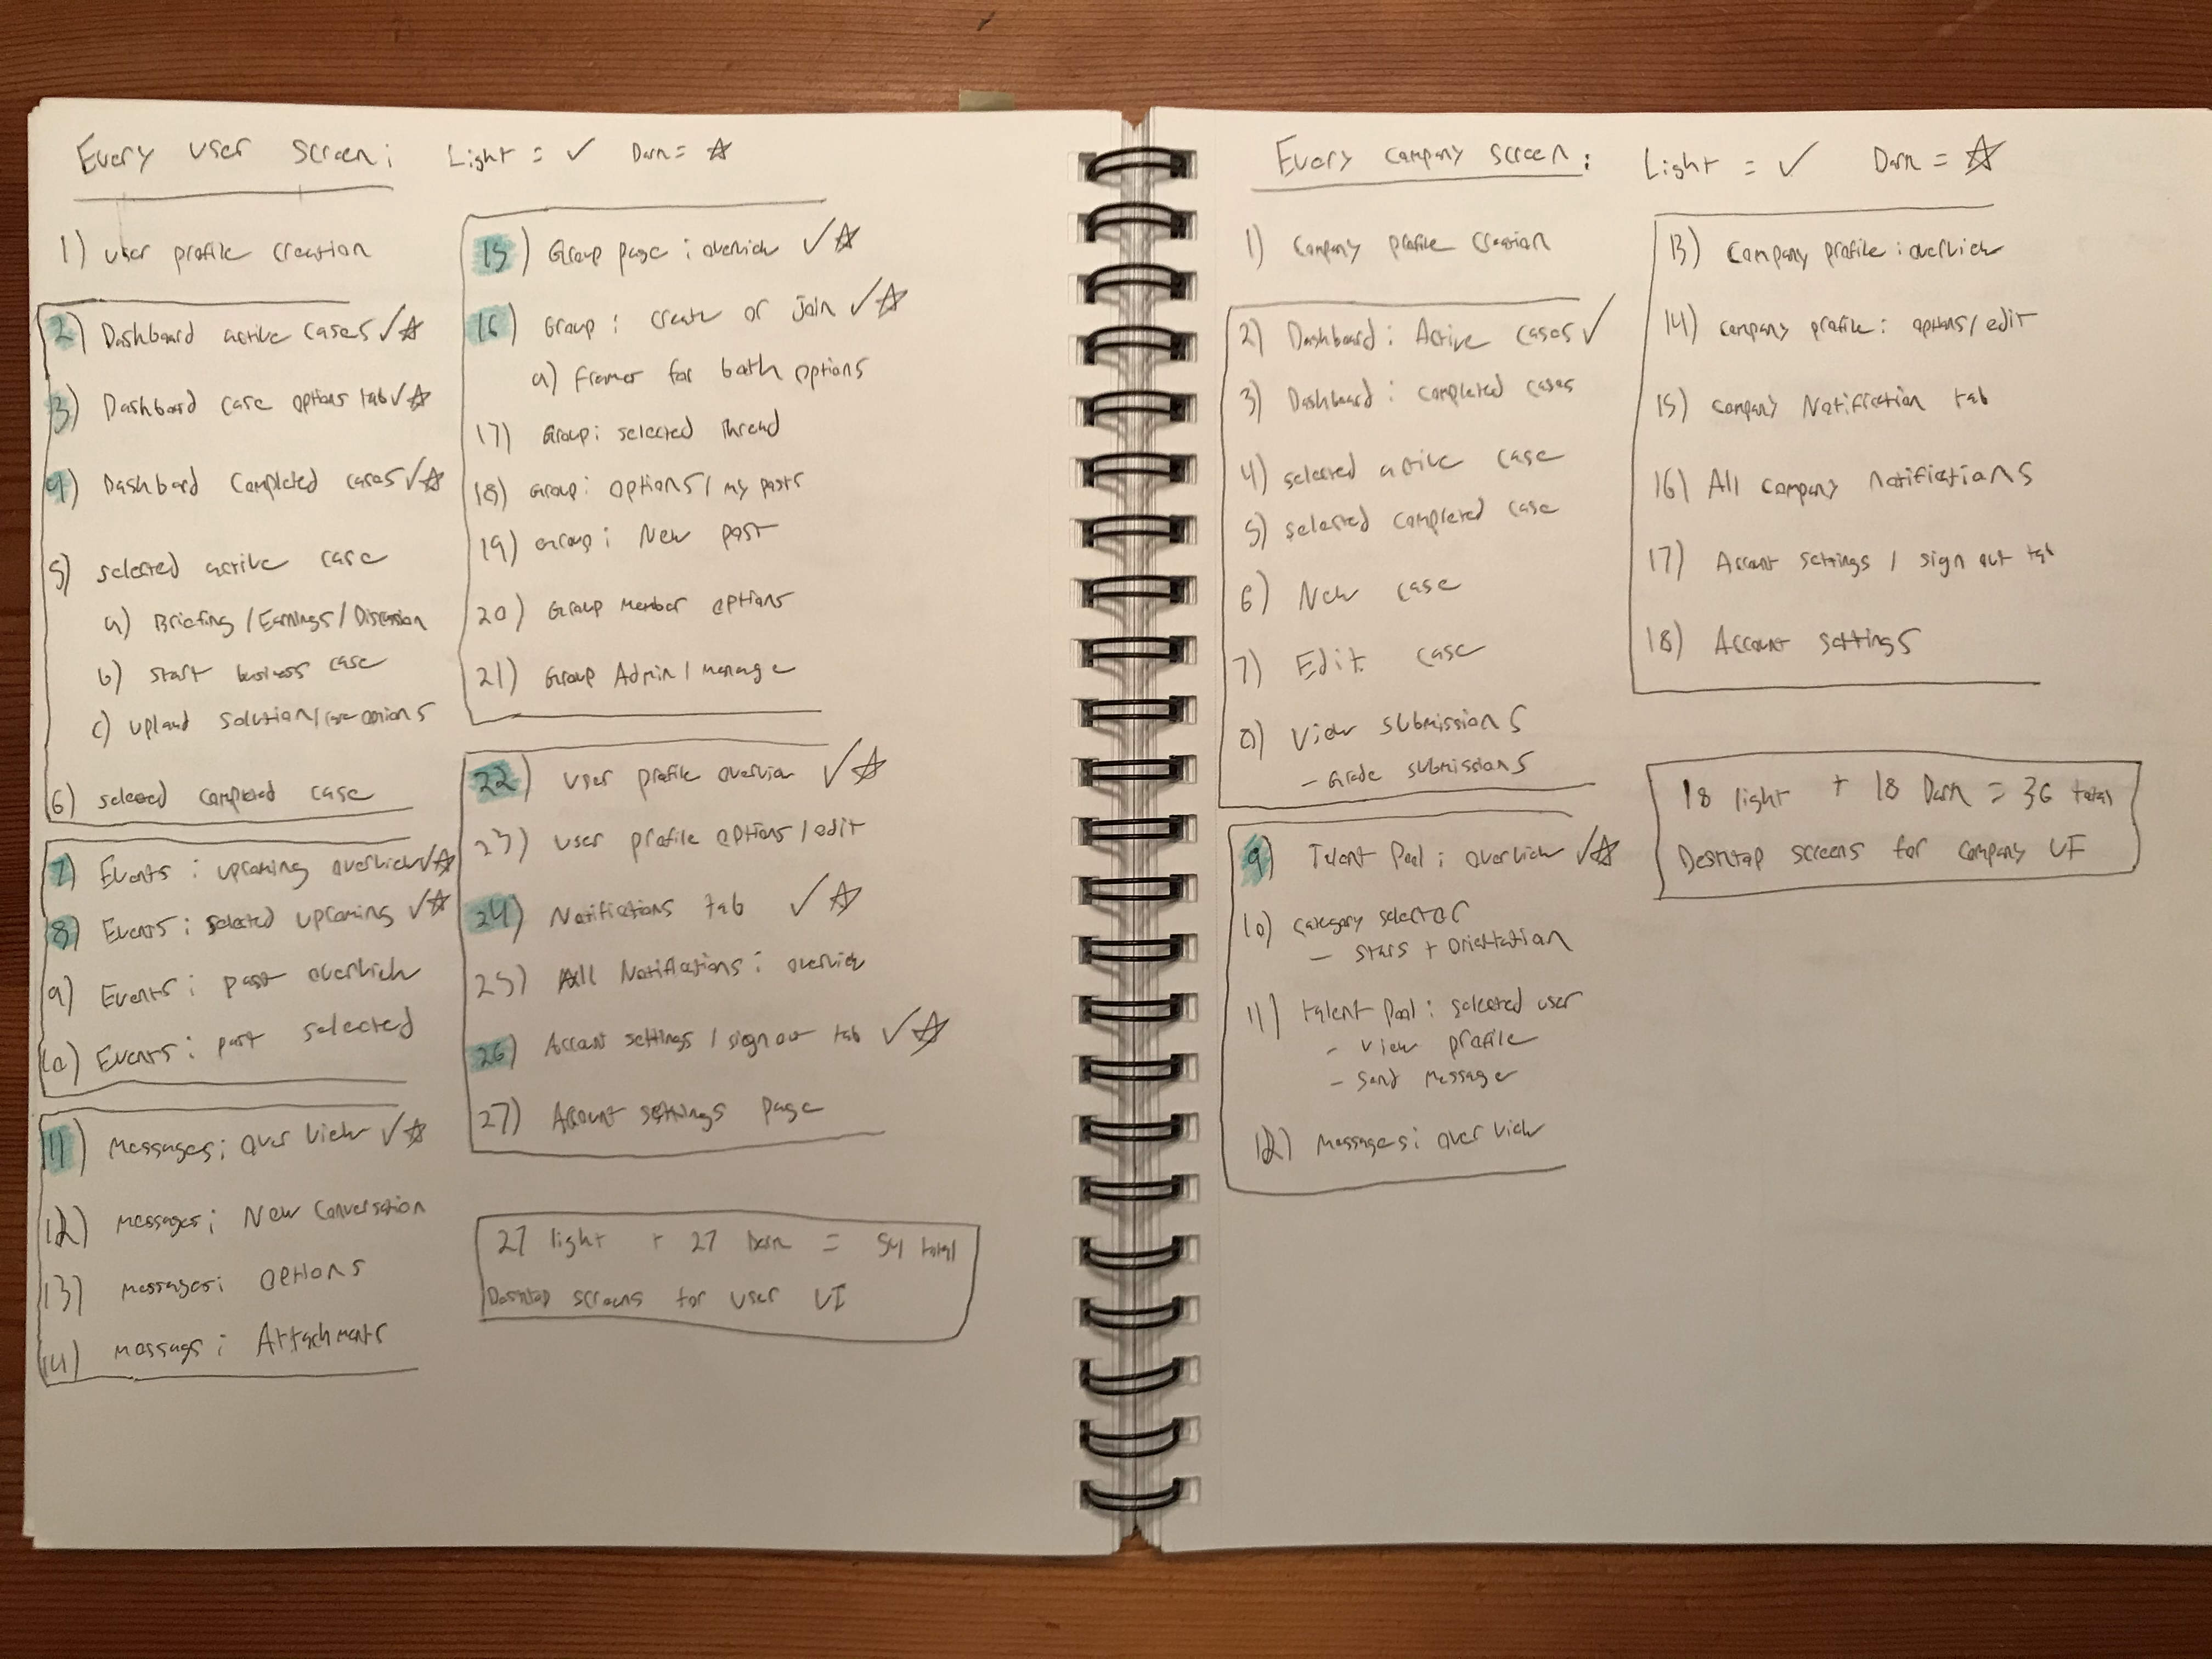 Every user screen: Light = ✓ Dark = ☆
1) user profile creation
2) Dashboard active cases ✓☆
3) Dashboard case options tab ✓☆
4) Dashboard Completed cases ✓☆
5) selected active case
a) Briefing / Earnings / Discussion
b) start business case
c) upload solution / case options
6) selected completed case
7) Events: upcoming overview ✓☆
8) Events: selected upcoming ✓☆
9) Events: past overview
10) Events: past selected
11) Messages: overview ✓☆
12) Messages: New Conversation
13) messages: options
14) message: Attachments
15) Group page: overview ✓☆
16) Group: create or join ✓☆
a) Frames for both options
17) Group: selected thread
18) Group: options / my posts
19) Group: New post
20) Group Member options
21) Group Admin / manage
22) user profile overview ✓☆
23) user profile options / edit
24) Notifications tab ✓☆
25) All Notifications: overview
26) Account settings / sign out tab ✓☆
27) Account settings page
27 light + 27 Dark = 54 total
Desktop screens for user UI
Every company screen: Light = ✓ Dark = ☆
1) Company profile creation
2) Dashboard: Active cases ✓
3) Dashboard: completed cases
4) selected active case
5) selected completed case
6) New case
7) Edit case
8) View submissions
- Grade submissions
9) Talent Pool: overview ✓☆
10) category selector
- stars + orientation
11) talent Pool: selected user
- view profile
- send message
12) Messages: overview
13) Company profile: overview
14) company profile: options / edit
15) company Notification tab
16) All company notifications
17) Account settings / sign out tab
18) Account settings
18 light + 18 Dark = 36 total
Desktop screens for company UI